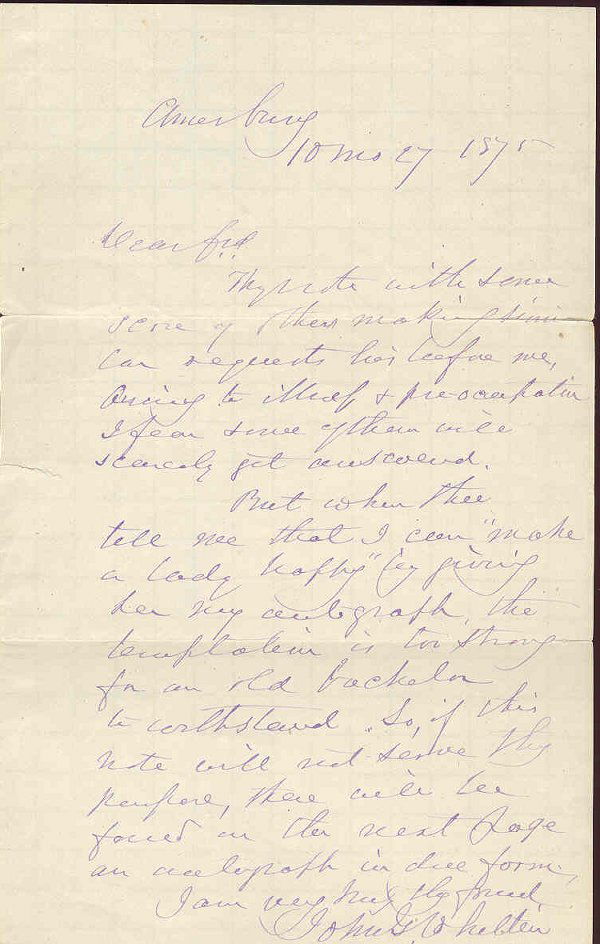 Amesbury
10 mo 27 1875
Dear frd
Thy note with some
score of others making simi
lar requests lies before me,
Owing to illness & pre-occupation
I fear some of them will
scarcely get answered.
But when thee
tell me that I can "make
a lady happy" by giving
her my autograph, the
temptation is too strong
for an old bachelor
to withstand. So, if this
note will not serve thy
purpose, there will be
found on the next page
an autograph in due form,
I am very truly thy friend
John G Whittier